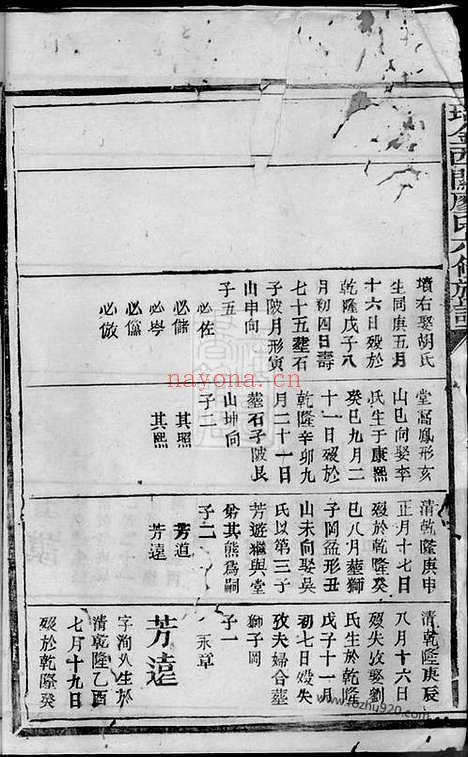 瑞金西關廖氏六修族譜
墳右娶胡氏
生同庚五月
十六日歿於
乾隆戊子八
月初四日壽
七十五塟石
子陂月形寅
山申向
子五
必佐
必儲
必岑
必儻
必倣
堂窩鳳形亥
山巳向娶李
氏生于康熙
癸巳九月二
十一日歿於
乾隆辛卯九
月二十一日
塟石子陂艮
山坤向
子二
其照
其熙
清乾隆庚申
正月十七日
歿於乾隆癸
巳八月塟獅
子岡盆形丑
山未向娶吳
氏以第三子
芳遊繼與堂
弟其熊爲嗣
子二
芳道
芳遠
清乾隆庚辰
八月十六日
歿失攷娶劉
氏生於乾隆
戊子十一月
初七日歿失
攷夫婦合塟
獅子岡
子一
永章
芳遠
字洵八生於
清乾隆乙酉
七月十九日
歿於乾隆癸
nayona.cn
www.fozhu920.com